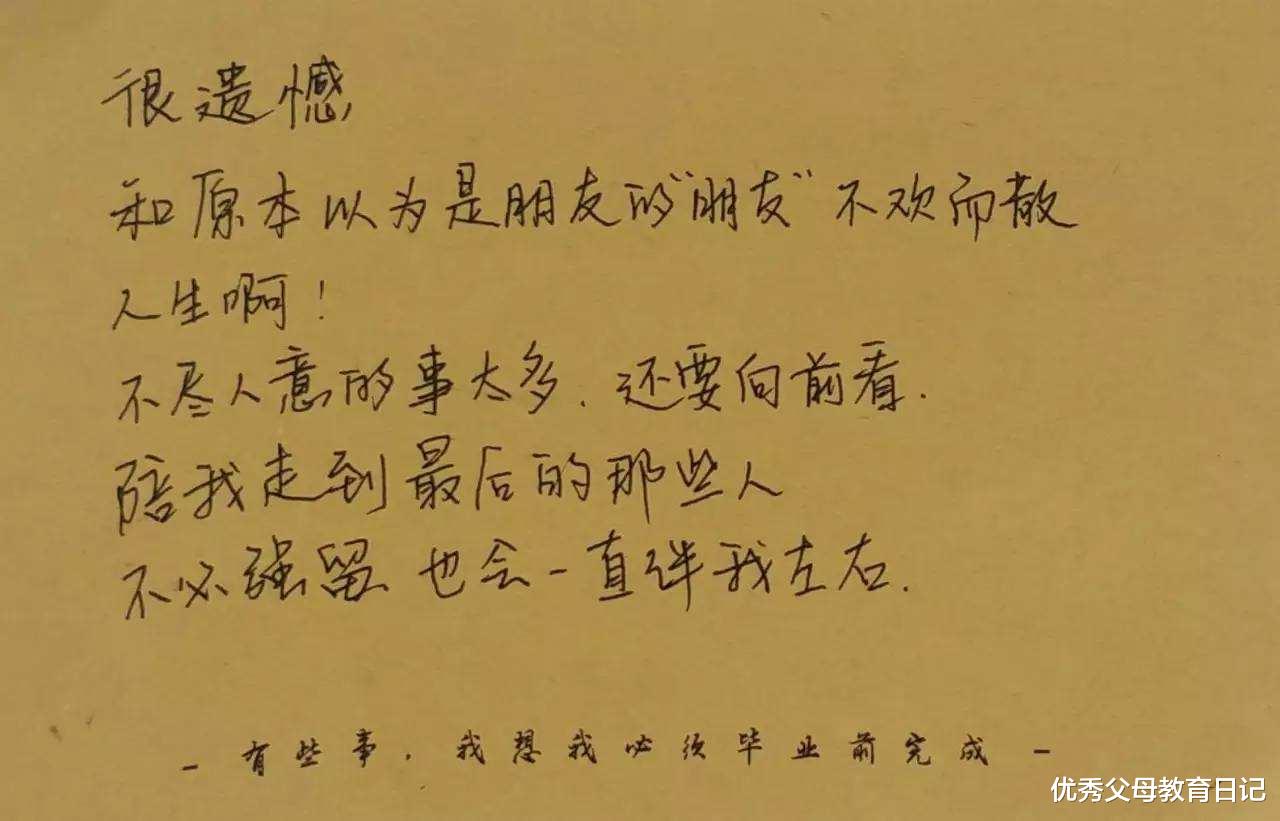 很遗憾
和原本以为是朋友的"朋友"不欢而散
人生啊！
不尽人意的事太多．还要向前看．
陪我走到最后的那些人
不必强留 也会一直伴我左右．
- 有些事．我想我必须毕业前完成 -
优秀父母教育日记